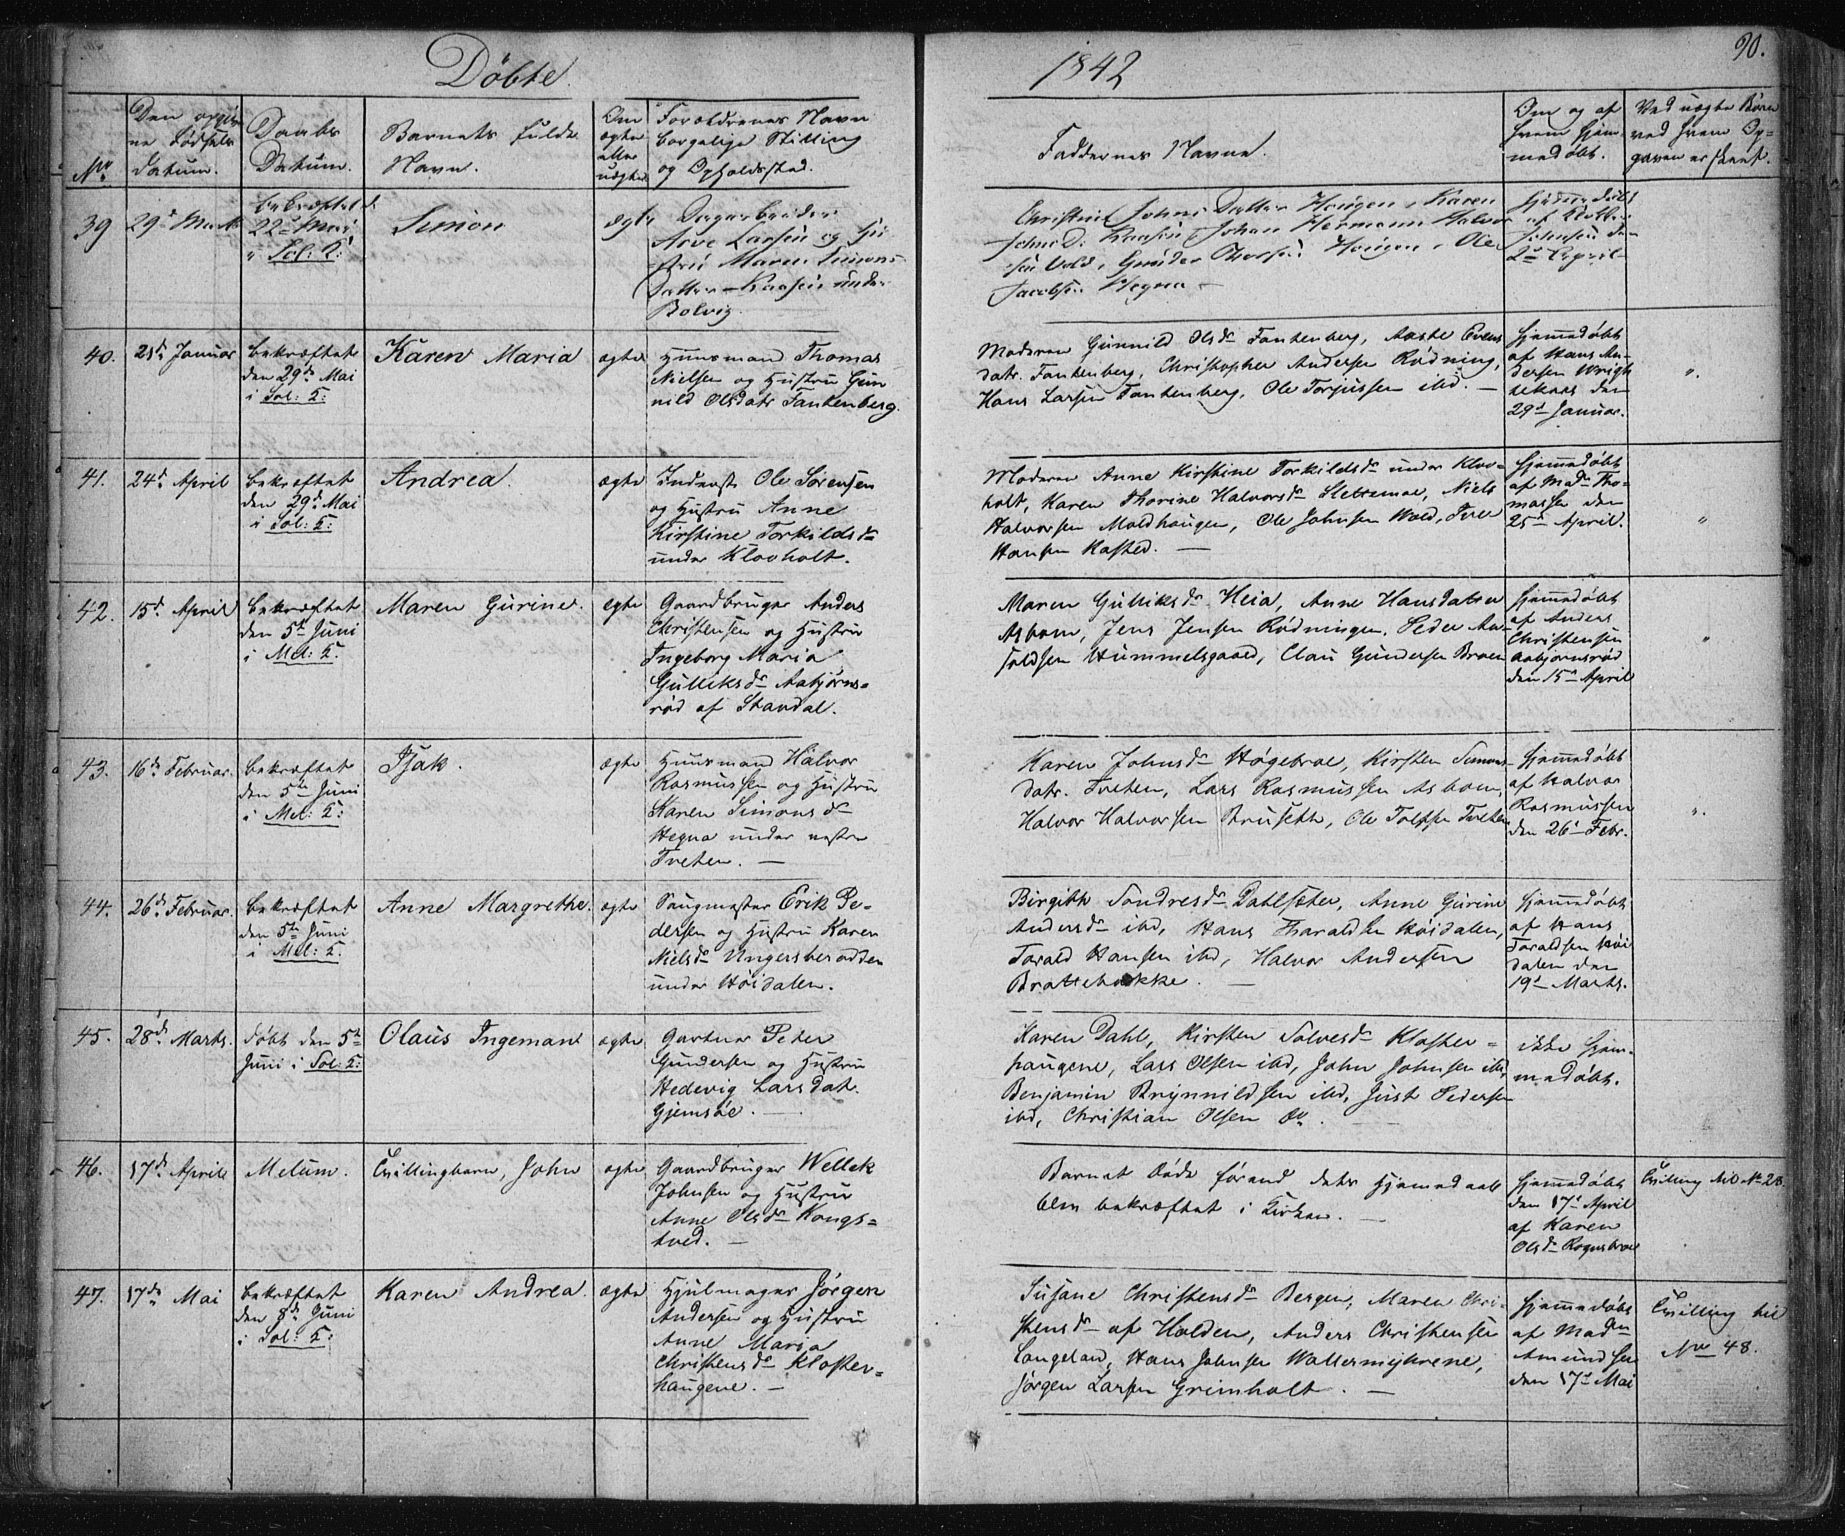 Döbte.
1842
90.
No
Den opgiv
ne Födsels
Datum.
Daabs
Datum.
Barnets fulde
Navn.
Om
ægte
eller
uægte
Forældrenes Navn
borgelige Stilling
og Opholdssted.
Faddernes Navne.
Om og af
hvem hjem
medøbt.
Ved uægte Børn
ved hvem Op-
gaven er skeet.
39
29d Marts
bekræftet d.
22d Mai
i Sol: K:
Simon
ægte
Arve Larsen og Hu
stru Maren Simons
Datter under
Bolvig.
Christine Johns Datter Haugen, Karen
Johan Hermann Halvor
sen Vold, Gunder Thorsen Haugen, Ole
Jacobsen Hegna -
hjemedöbt
af
Johnsen den
2d April
40.
21d Januar
bekræftet
den 29d Mai
i Sol: K:
Karen Maria
ægte
Huusmand Thomas
Nielsen og Hustru Gun
nild Olsdatr Fantenberg.
Moderen Gunnild Olsdr Fantenberg, Aaste Evens
datr. Fantenberg, Christopher Andersen Rödning,
Hans Larsen Fantenberg, Ole Torjussen ibd. -
Hjemedøbt
af Hans An-
dersen
den
29d Januar.
"
41.
24d April
bekræftet
den 29d Mai
i Sol: K:
Andrea.
ægte
Inderst Ole Sörensen
og Hustru Anne
Kirstine Torkildsdr
under Klovholt.
Moderen Anne Kirstine Torkildsdr under Klov-
holt, Karen Thorine Halvorsdr Slettemoe, Niels
Halvorsen Moldhaugen, Ole Johnsen Wold, Iver
Hansen Rasted. -
Hjemedøbt
af Mads Tho-
massen den
25d April.
"
42.
15d April
bekræftet
den 5te Juni
i Mel: K:
Maren Gurine.
ægte
Gaardbruger Anders
Christensen og Hustru
Ingeborg Maria
Gulliksdr Aabjörns-
röd af Standal.
Maren Gulliksdr Heia, Anne Hansdatter
Asbom, Jens Jensen Rödningen, Peder An-
foldsen Hummelsgaard, Claus Gundersen Broen
Hjemedøbt
af Anders
Christensen
Aabjornsröd
den 15d April
"
43.
16d Februar.
bekræftet
den 5te Juni
i Mel: K:
Isak.
ægte
Huusmand Halvor
Rasmussen og Hustru
Karen Simonsdr
Hegna under nestre
Tveten. -
Karen Johnsdr Høgebroe, Kirsten Simons-
datr. Tveten, Lars Rasmussen Asbom,
Halvor Halvorsen Bruseth, Ole Tolfsen Tveten
Hjemedøbt
af Halvor
Rasmussen
den 26d Febr.
"
44.
26d Februar.
bekræftet
den 5te Juni
i Mel: K:
Anne Margrethe.
ægte
Saugmester Erik Pe-
dersen og Hustru Karen
Nielsdr Ungersbrodden
under Höidalen.
Birgith Sondresdr Dahlsæter, Anne Gurine
Andersdr ibd, Hans Tharaldsen Höidalen,
Torald Hansen ibd, Halvor Andersen
Brattebakke. -
Hjemedøbt
af Hans
Toraldsen Höi
dalen den
19d Marts.
45.
28d Marts.
døbt den 5te
Juni i Sol: K:
Olaus Ingeman
ægte
Gartner Peter
Gundersen og Hustru
Hedevig Larsdat.
Gjemsöe. -
Karen Dahl, Kirsten Solvesdr Kloster-
haugene, Lars Olsen ibd, John Johnsen ibd,
Benjamin Brynnildsen ibd, Just Pedersen
ibd, Christian Olsen do.
ikke hjem-
medøbt.
46.
17d April
Melum.
Tvillingbarn, John
ægte
Gaardbruger Wellek
Johnsen og Hustru
Anne Olsdr Kongs-
tved. -
Barnet døde förend dets Hjemedaab
blev bekræftet i Kirken. -
Hjemedøbt
den 17d April
af Karen
Olsdr Rognsbroe
Tvilling til No 28
47.
17de Mai
bekræftet
den 8de Juni
i Sol: K:
Karen Andrea.
ægte
Hjulmager Jörgen
Andersen og Hustru
Anne Maria
Christensdr Kloster-
haugene. -
Susane Christensdr Bergen, Maren Chri-
stensdr af Holden, Anders Christensen
Langeland, Hans Johnsen Waltermyhrene,
Jörgen Larsen Grimholt. -
Hjemedøbt
af Maden
Amundsen
den 17d Mai
Tvilling til
No 48.